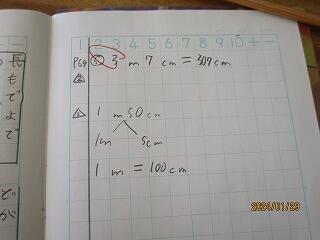 1 2 3 4 5 6 7 8 9 10 + −
P69 ⑤ 3 m 7 cm = 307cm
②
① 1 m 50 cm
1m 5cm
1 m = 100cm
長
も
で
よ
で
ど
が
2024/01/29